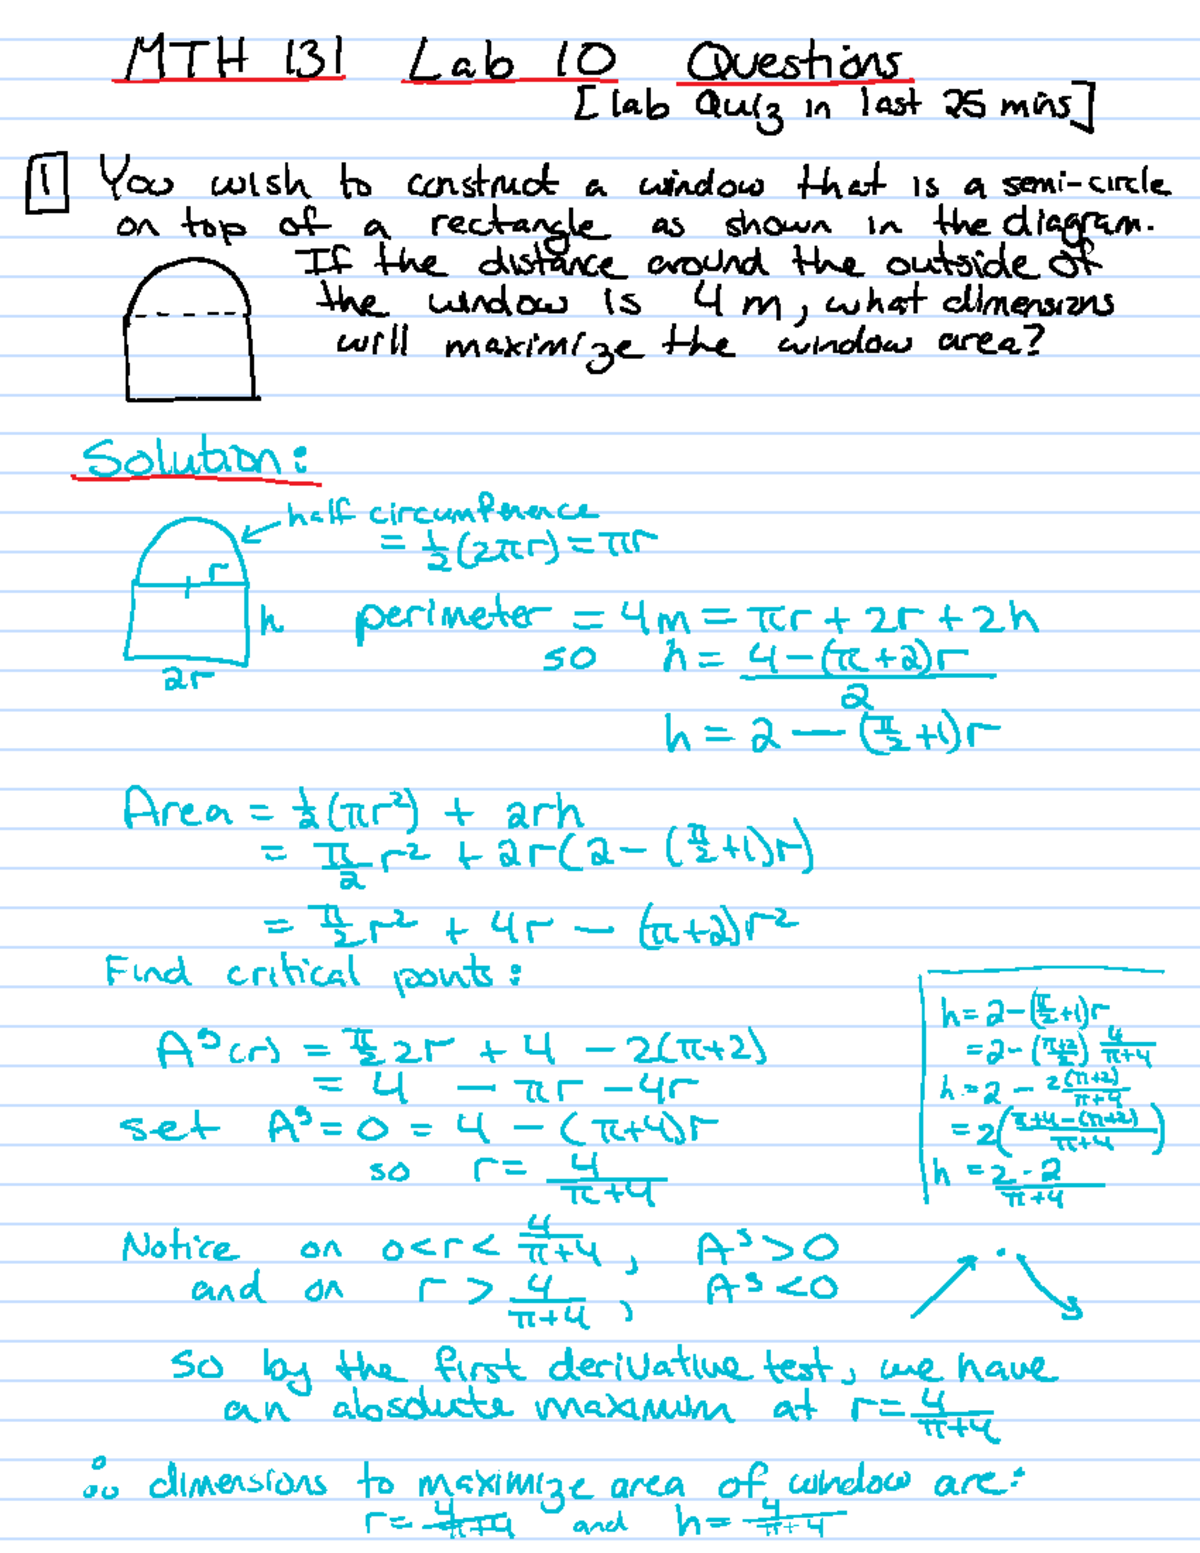 MTH 131 Lab 10 Questions
[lab Quiz in last 25 mins]
1 You wish to construct a window that is a semi-circle
on top of a rectangle as shown in the diagram.
If the distance around the outside of
the window is 4 m, what dimensions
will maximize the window area?
Solution:
half circumference
= 1/2 (2πr) = πr
r
h
2r
perimeter = 4m = πr + 2r + 2h
so h = 4 - (π+2)r / 2
h = 2 - (π/2 + 1)r
Area = 1/2 (πr²) + 2rh
= π/2 r² + 2r(2 - (π/2 + 1)r)
= π/2 r² + 4r - (π+2)r²
Find critical points:
A'(r) = π/2 2r + 4 - 2(π+2)
= 4 - πr - 4r
set A' = 0 = 4 - (π+4)r
so r = 4/(π+4)
h = 2 - (π/2 + 1)r
= 2 - (π+2/2) 4/(π+4)
h = 2 - 2(π+2)/(π+4)
= 2(π+4-(π+2)/(π+4))
h = 2·2/(π+4)
Notice on 0<r< 4/(π+4), A'>0
and on r > 4/(π+4), A'<0
so by the first derivative test, we have
an absolute maximum at r = 4/(π+4)
∴ dimensions to maximize area of window are:
r = 4/(π+4) and h = 4/(π+4)